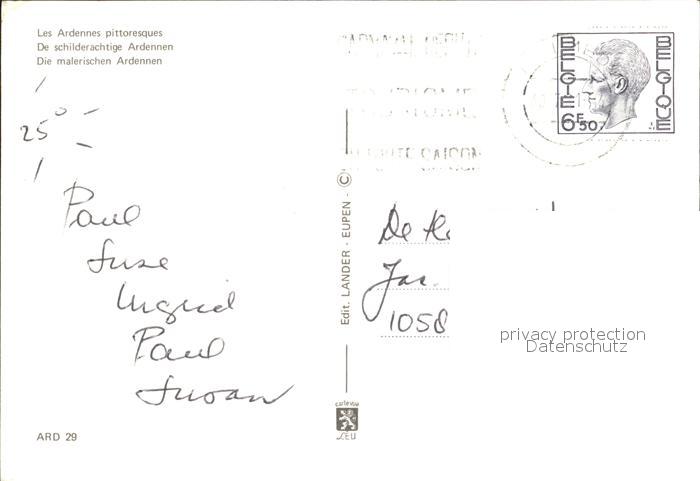 Les Ardennes pittoresques
De schilderachtige Ardennen
Die malerischen Ardennen
25°
Paul
Suse
Ingrid
Paul
Susan
ARD 29
Edit. LANDER - EUPEN - ©
carte vue
LEU
SAISON
BELGIE
BELGIQUE
6F50
De
Jac.
1058
privacy protection
Datenschutz